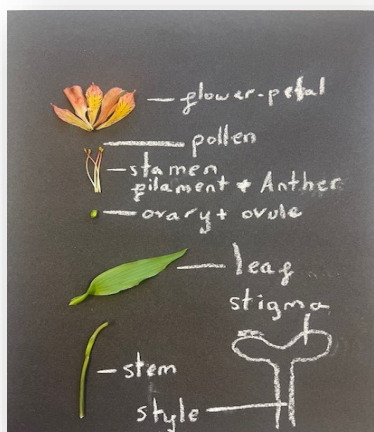 flower-petal
pollen
stamen
filament + Anther
ovary + ovule
leaf
stigma
stem
style